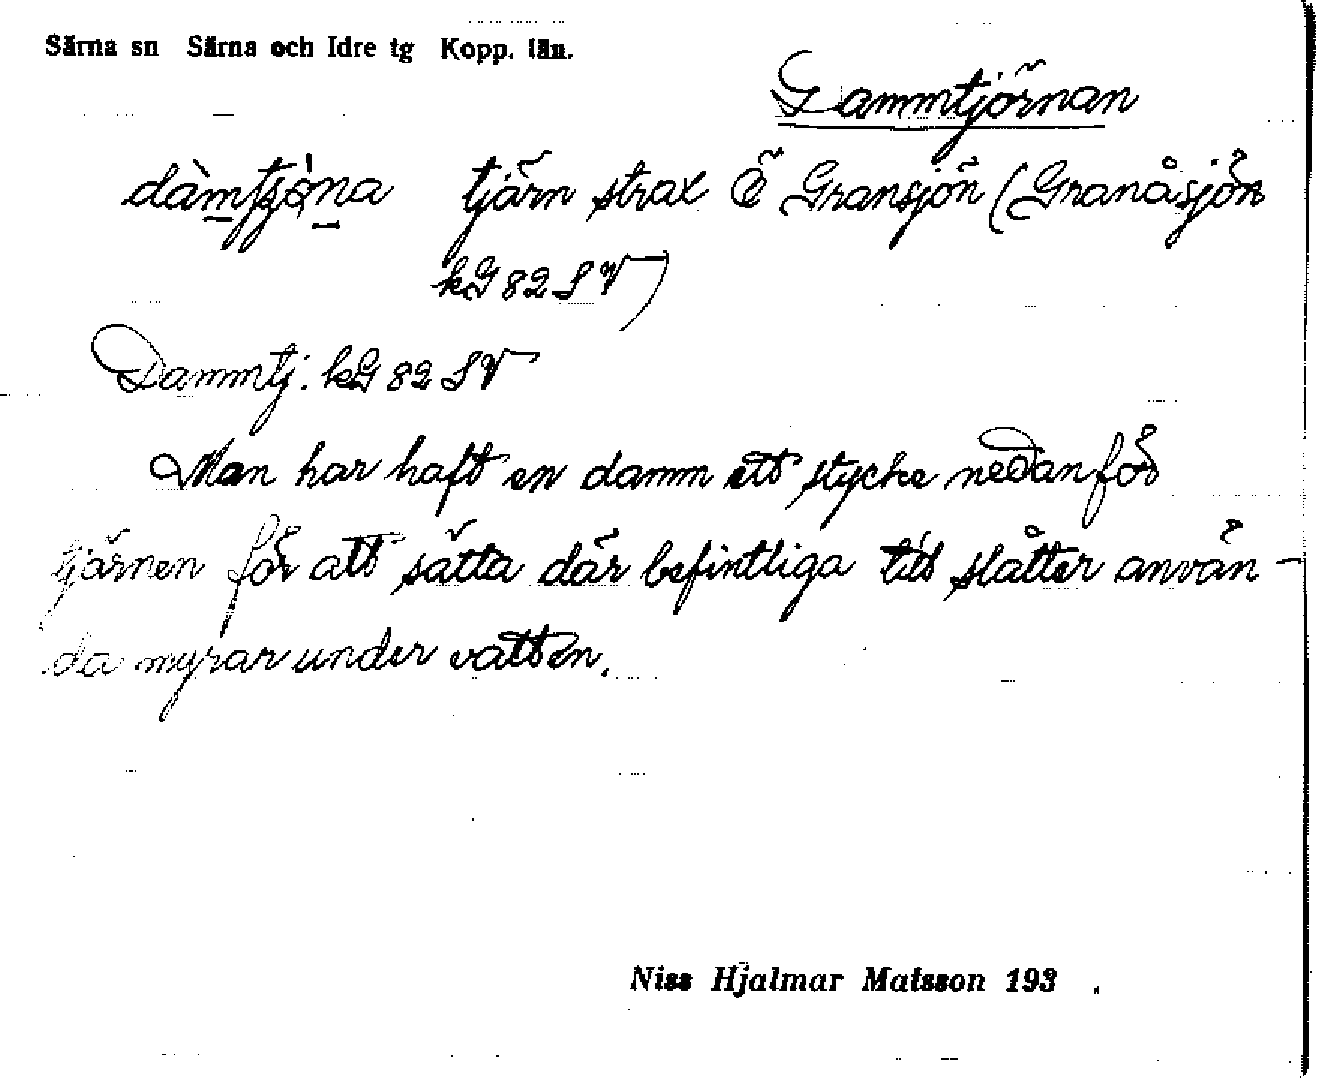 Särna sn Särna och Idre tg Kopp. län.
Dammtjörnan
dàmtjö̀na tjärn strax Ö Gransjön (Granåsjön
kG 82 SV)
Dammtj: kG 82 SV
Man har haft en damm ett stycke nedanför
tjärnen för att sätta där befintliga till slåtter använ-
da myrar under vatten.
Niss Hjalmar Matsson 193 .